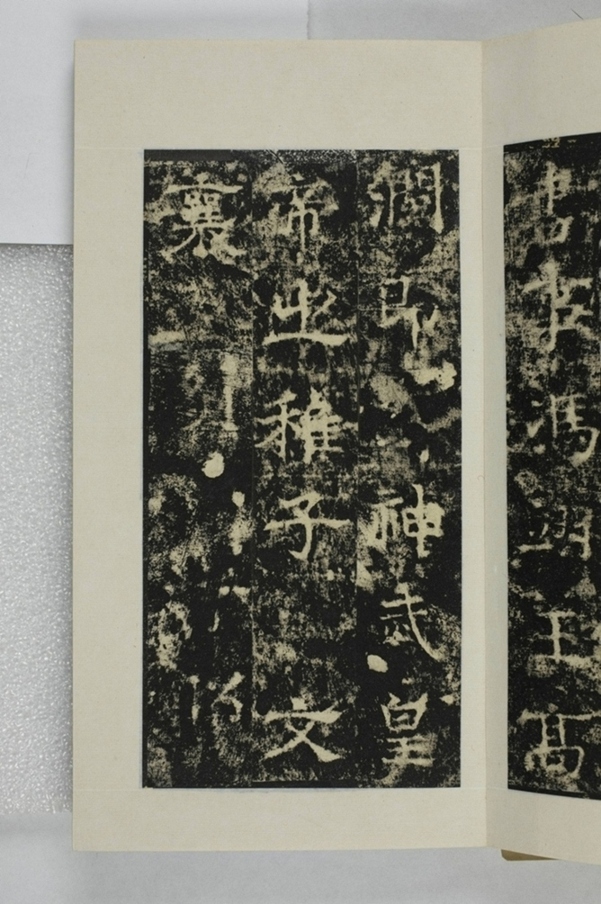 書事馮翊王高
潤即神武皇
帝之稚子文
襄